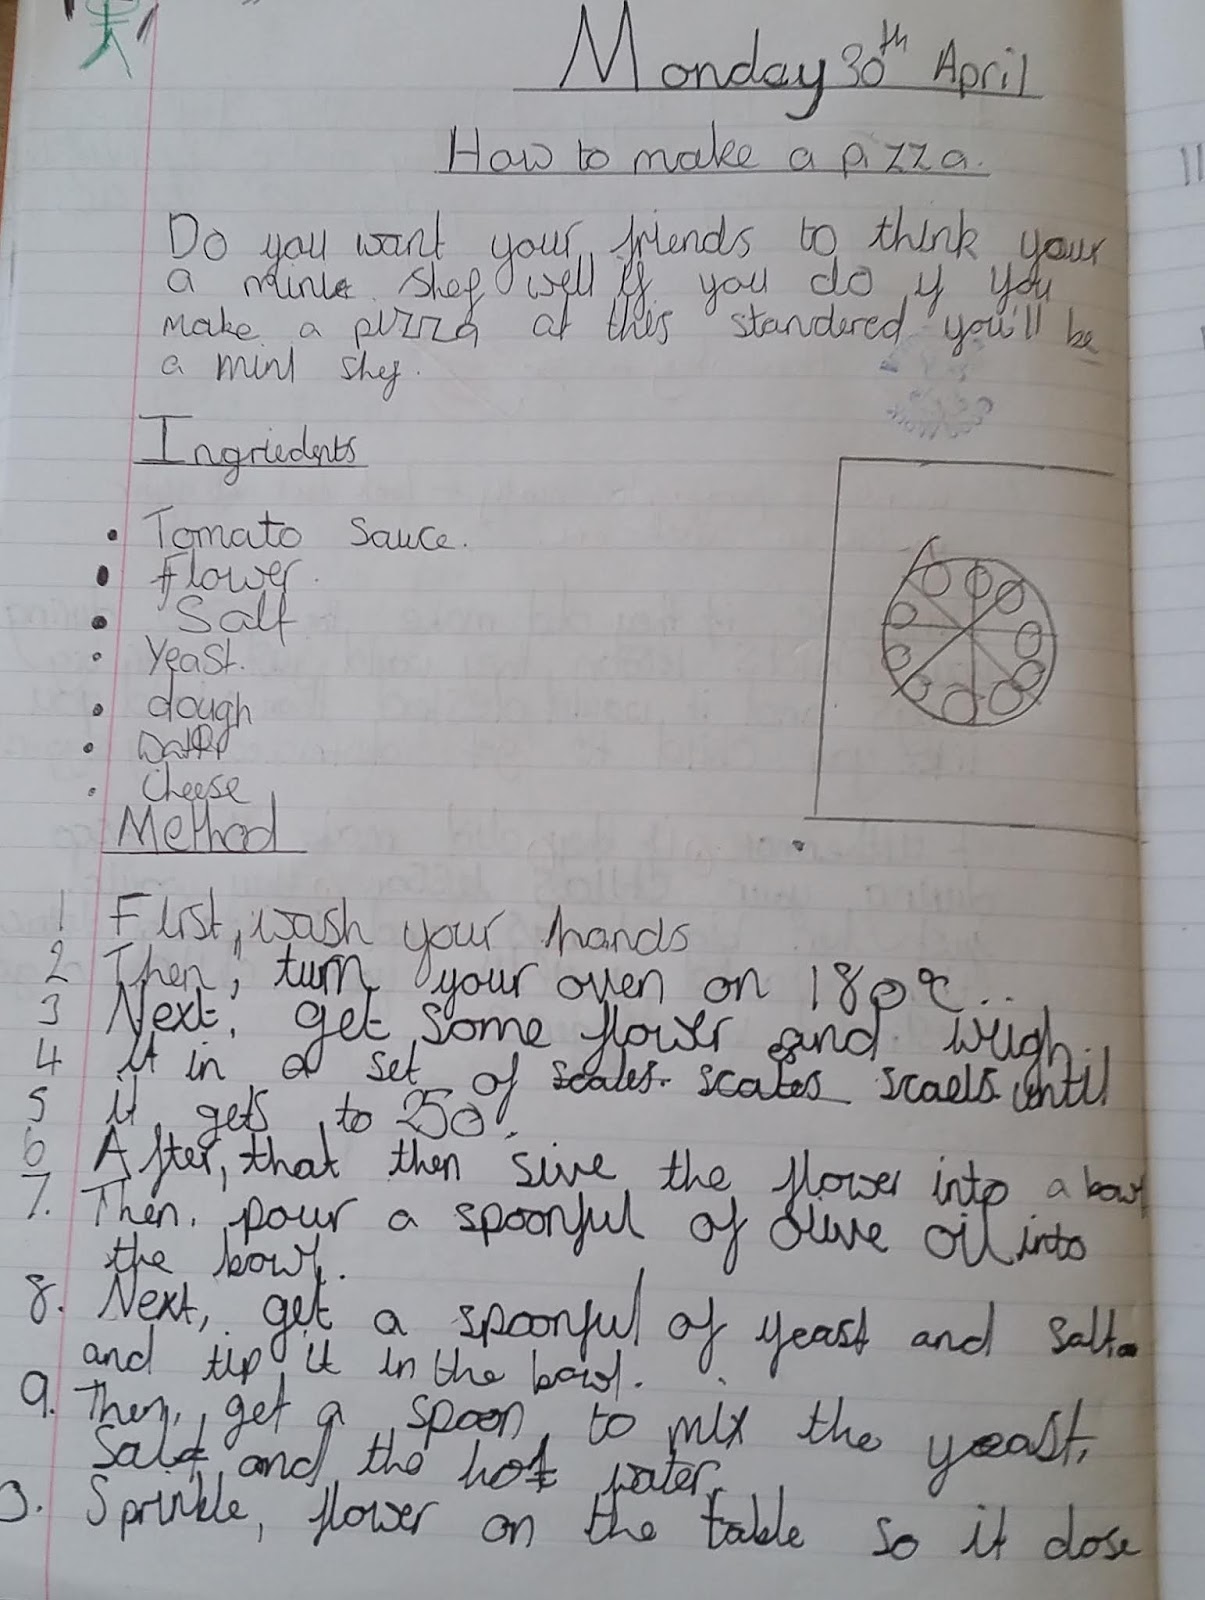 Monday 30th April
How to make a pizza.
Do you want your friends to think your
a minie shef well if you do if you
make a pizza at this standered you'll be
a mini shef.
Ingriedents
• Tomato sauce.
• Flower.
• Salt
• Yeast.
• dough
•
• Cheese
Method
1 First, wash your hands
2 Then, turn your oven on 180°c..
3 Next, get some flower and weigh
4 it in a set of scales. scates scaels until
5 it gets to 250.
6 After, that then sive the flower into a bowl
7. Then, pour a spoonful of olive oil into
the bowl.
8. Next, get a spoonful of yeast and salt.
and tip it in the bowl.
9. Then, get a spoon to mix the yeast,
Salt and the hot water.
Sprinkle, flower on the table so it dose